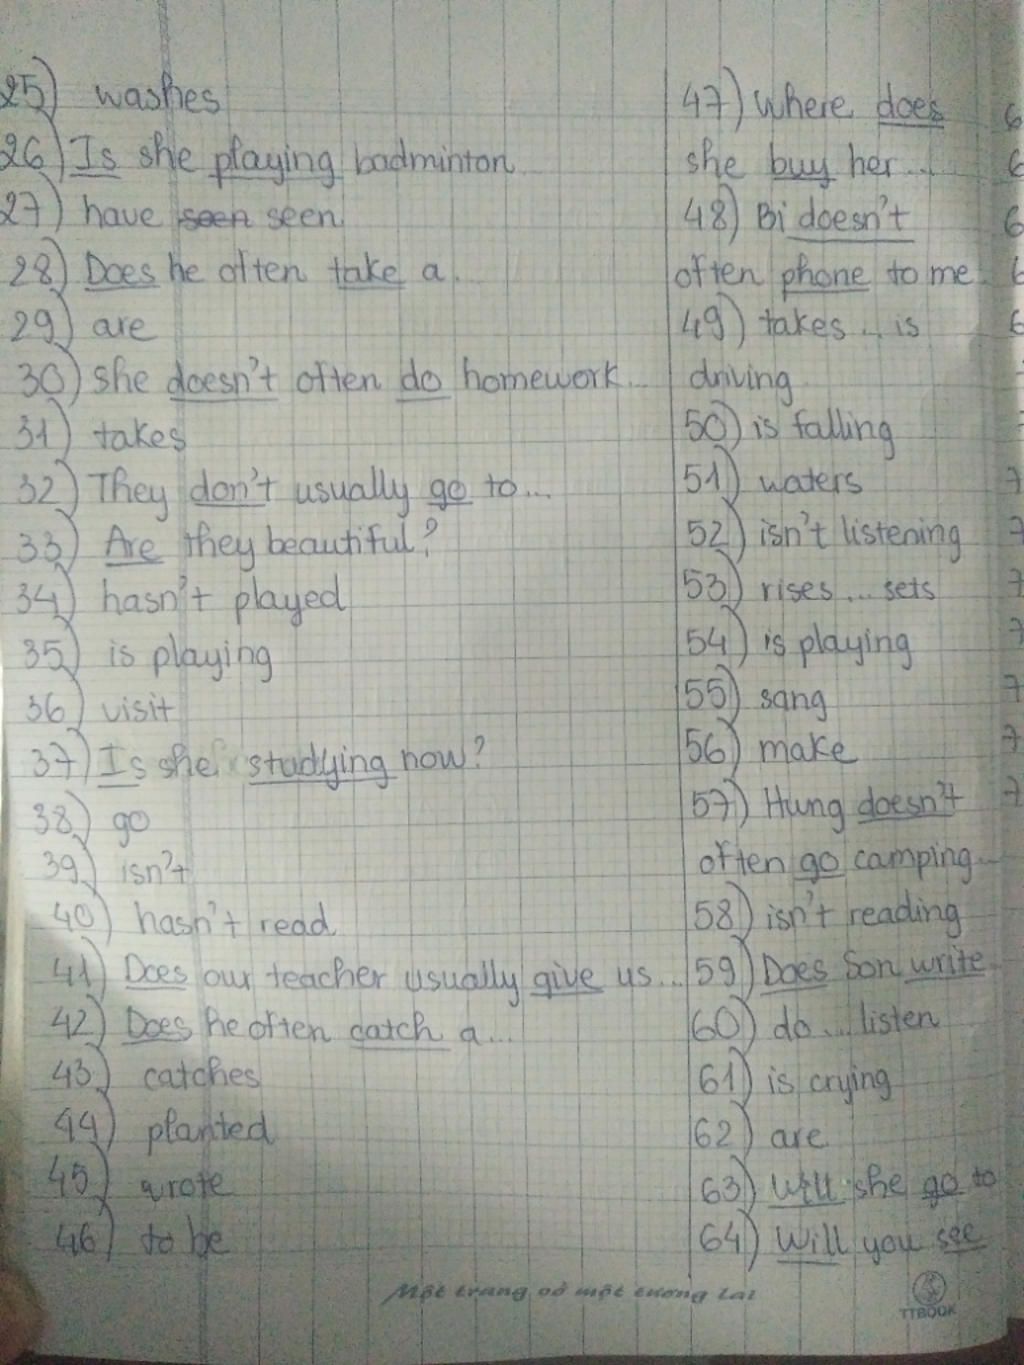 25) washes
26) Is she playing badminton
27) have seen seen
28) Does he often take a..
29) are
30) she doesn't often do homework...
31) takes
32) They don't usually go to...
33) Are they beautiful?
34) hasn't played
35) is playing
36) visit
37) Is she studying now?
38) go
39) isn't
40) hasn't read
41) Does our teacher usually give us...
42) Does he often catch a...
43) catches
44) planted
45) wrote
46) to be
47) Where does
she buy her...
48) Bi doesn't
often phone to me
49) takes... is
driving
50) is falling
51) waters
52) isn't listening
53) rises... sets
54) is playing
55) sang
56) make
57) Hung doesn't
often go camping...
58) isn't reading
59) Does Son write
60) do... listen
61) is crying
62) are
63) Will she go to
64) Will you see
6
6
6
6
6
7
7
7
7
7
7
7
Một trang vở một tương lai
TTBOOK